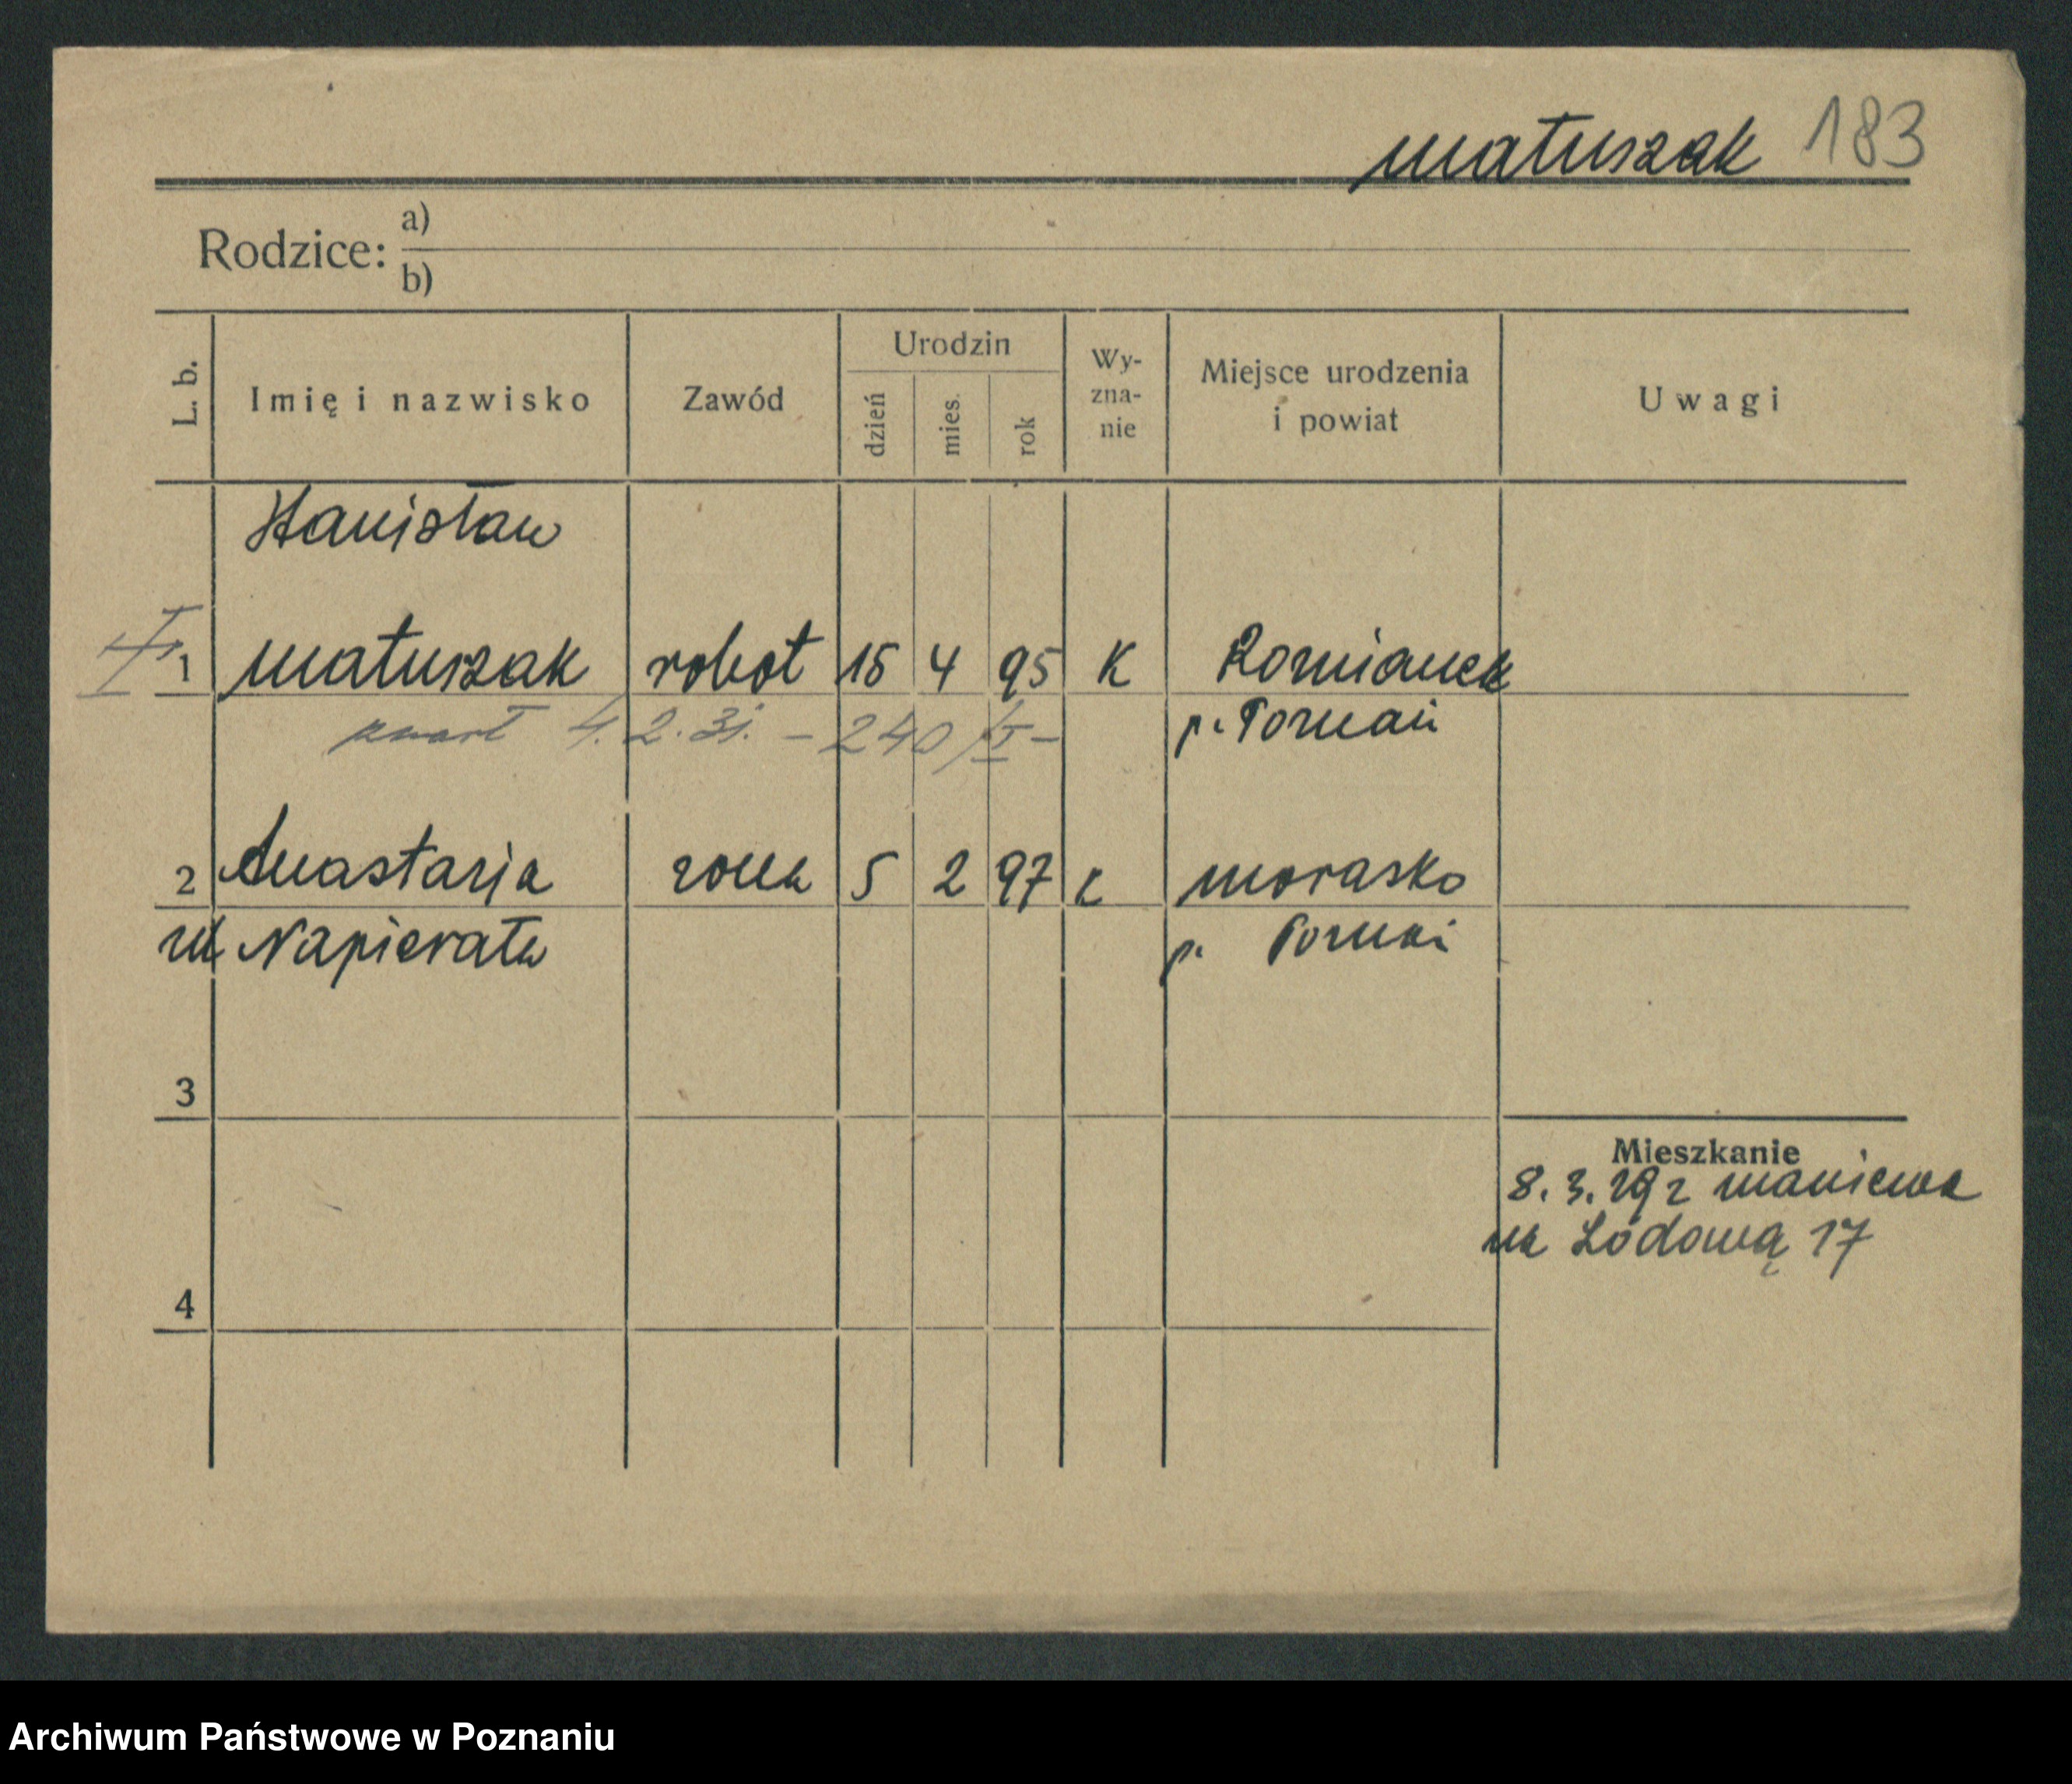 Matuszak 183
Rodzice: a)
b)
L. b. Imię i nazwisko Zawód Urodzin dzień mies. rok Wy-zna-nie Miejsce urodzenia i powiat Uwagi
Stanisław
1 Matuszak robot 15 4 95 K
p. Poznań
zmarł 4. 2. 31. – 240/I –
2 Anastazja żona 5 2 97 K Morasko
Napierała p. Poznań
3
Mieszkanie
8. 3. 29 z Maniewa
na Lodową 17
4
Archiwum Państwowe w Poznaniu